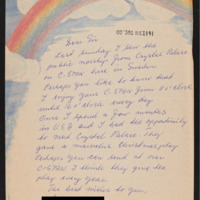 Dear Sir
Last sunday I saw the
public worship from Crystal Palace
on C-SPAN here in Sweden.
Perhaps you like to know that
I enjoy your C-SPAN from o'clock
until o'clock every day
Once I spend a few minutes
in USA and I had the opportunity
to visit Crystal Palace. They
gave a marvelous Christmas play
Perhaps you can send it on
C-SPAN. I think they give the
play every year.
The best wishes to you.